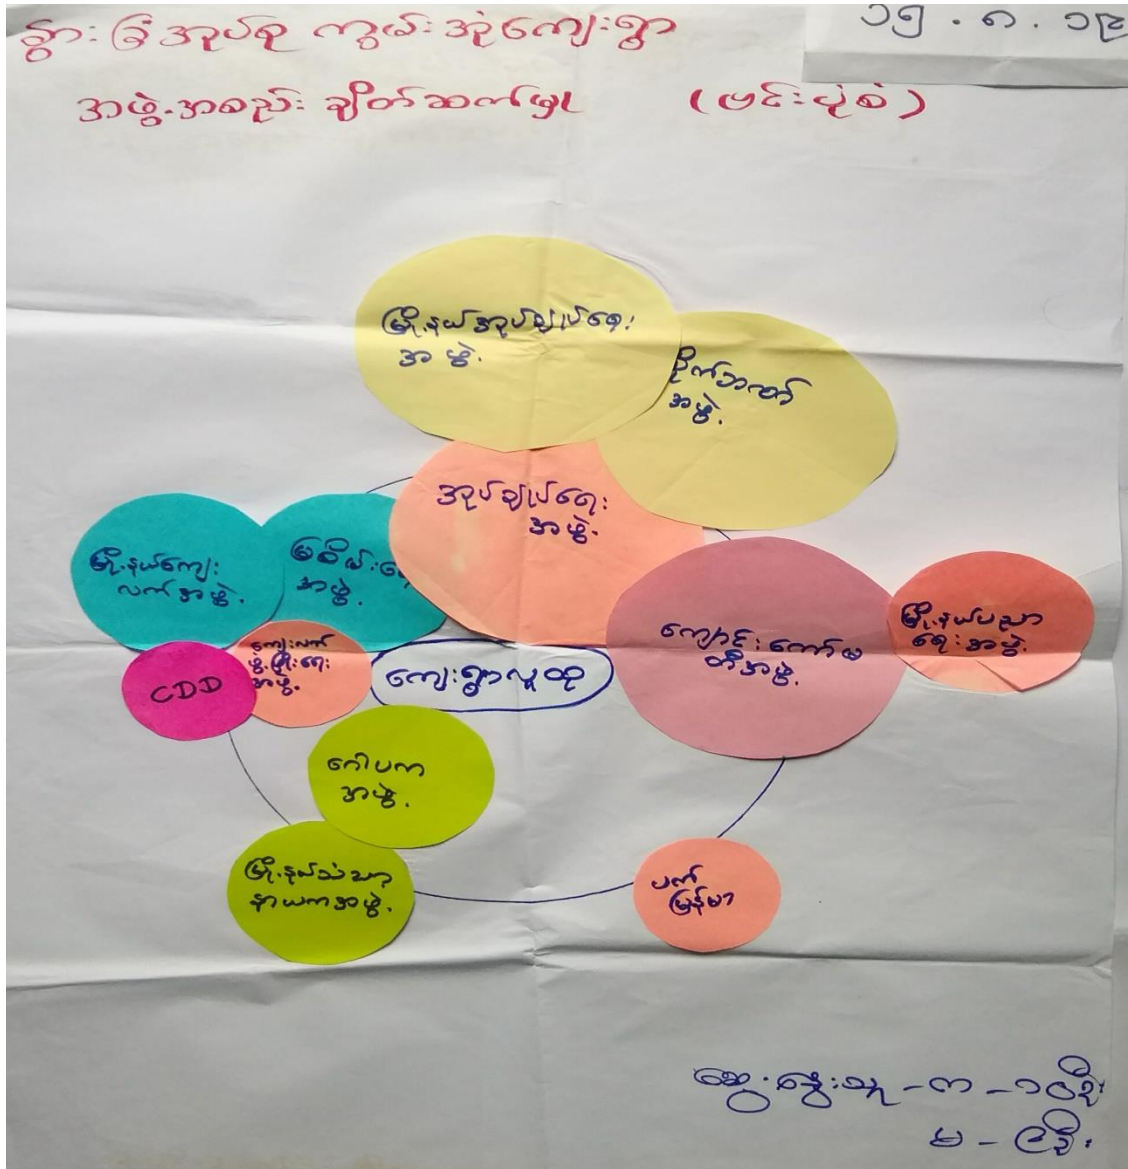 ၁၅ . ၈ . ၁၉
နွားခြံအုပ်စု ကွမ်းအုံကျေးရွာ
အဖွဲ့အစည်း ချိတ်ဆက်မှု (ဗင်းပုံစံ)
မြို့နယ်အုပ်ချုပ်ရေး
အဖွဲ့.
အဖွဲ့.
အုပ်ချုပ်ရေး
အဖွဲ့.
မြို့နယ်ကျေး
လက်အဖွဲ့.
မြစိမ်း
အဖွဲ့.
ကျောင်းကော်မ
တီအဖွဲ့.
မြို့နယ်ပညာ
ရေးအဖွဲ့.
CDD
ကျေးလက်
ဖွံ့ဖြိုးရေး
အဖွဲ့.
ကျေးရွာလူထု
ဂေါပက
အဖွဲ့.
မြို့နယ်သံဃာ့
နာယကအဖွဲ့.
ပက်
မြန်မာ
ဆွေးနွေးသူ - ကျ - ၁၀ဦး
မ - ၉ဦး